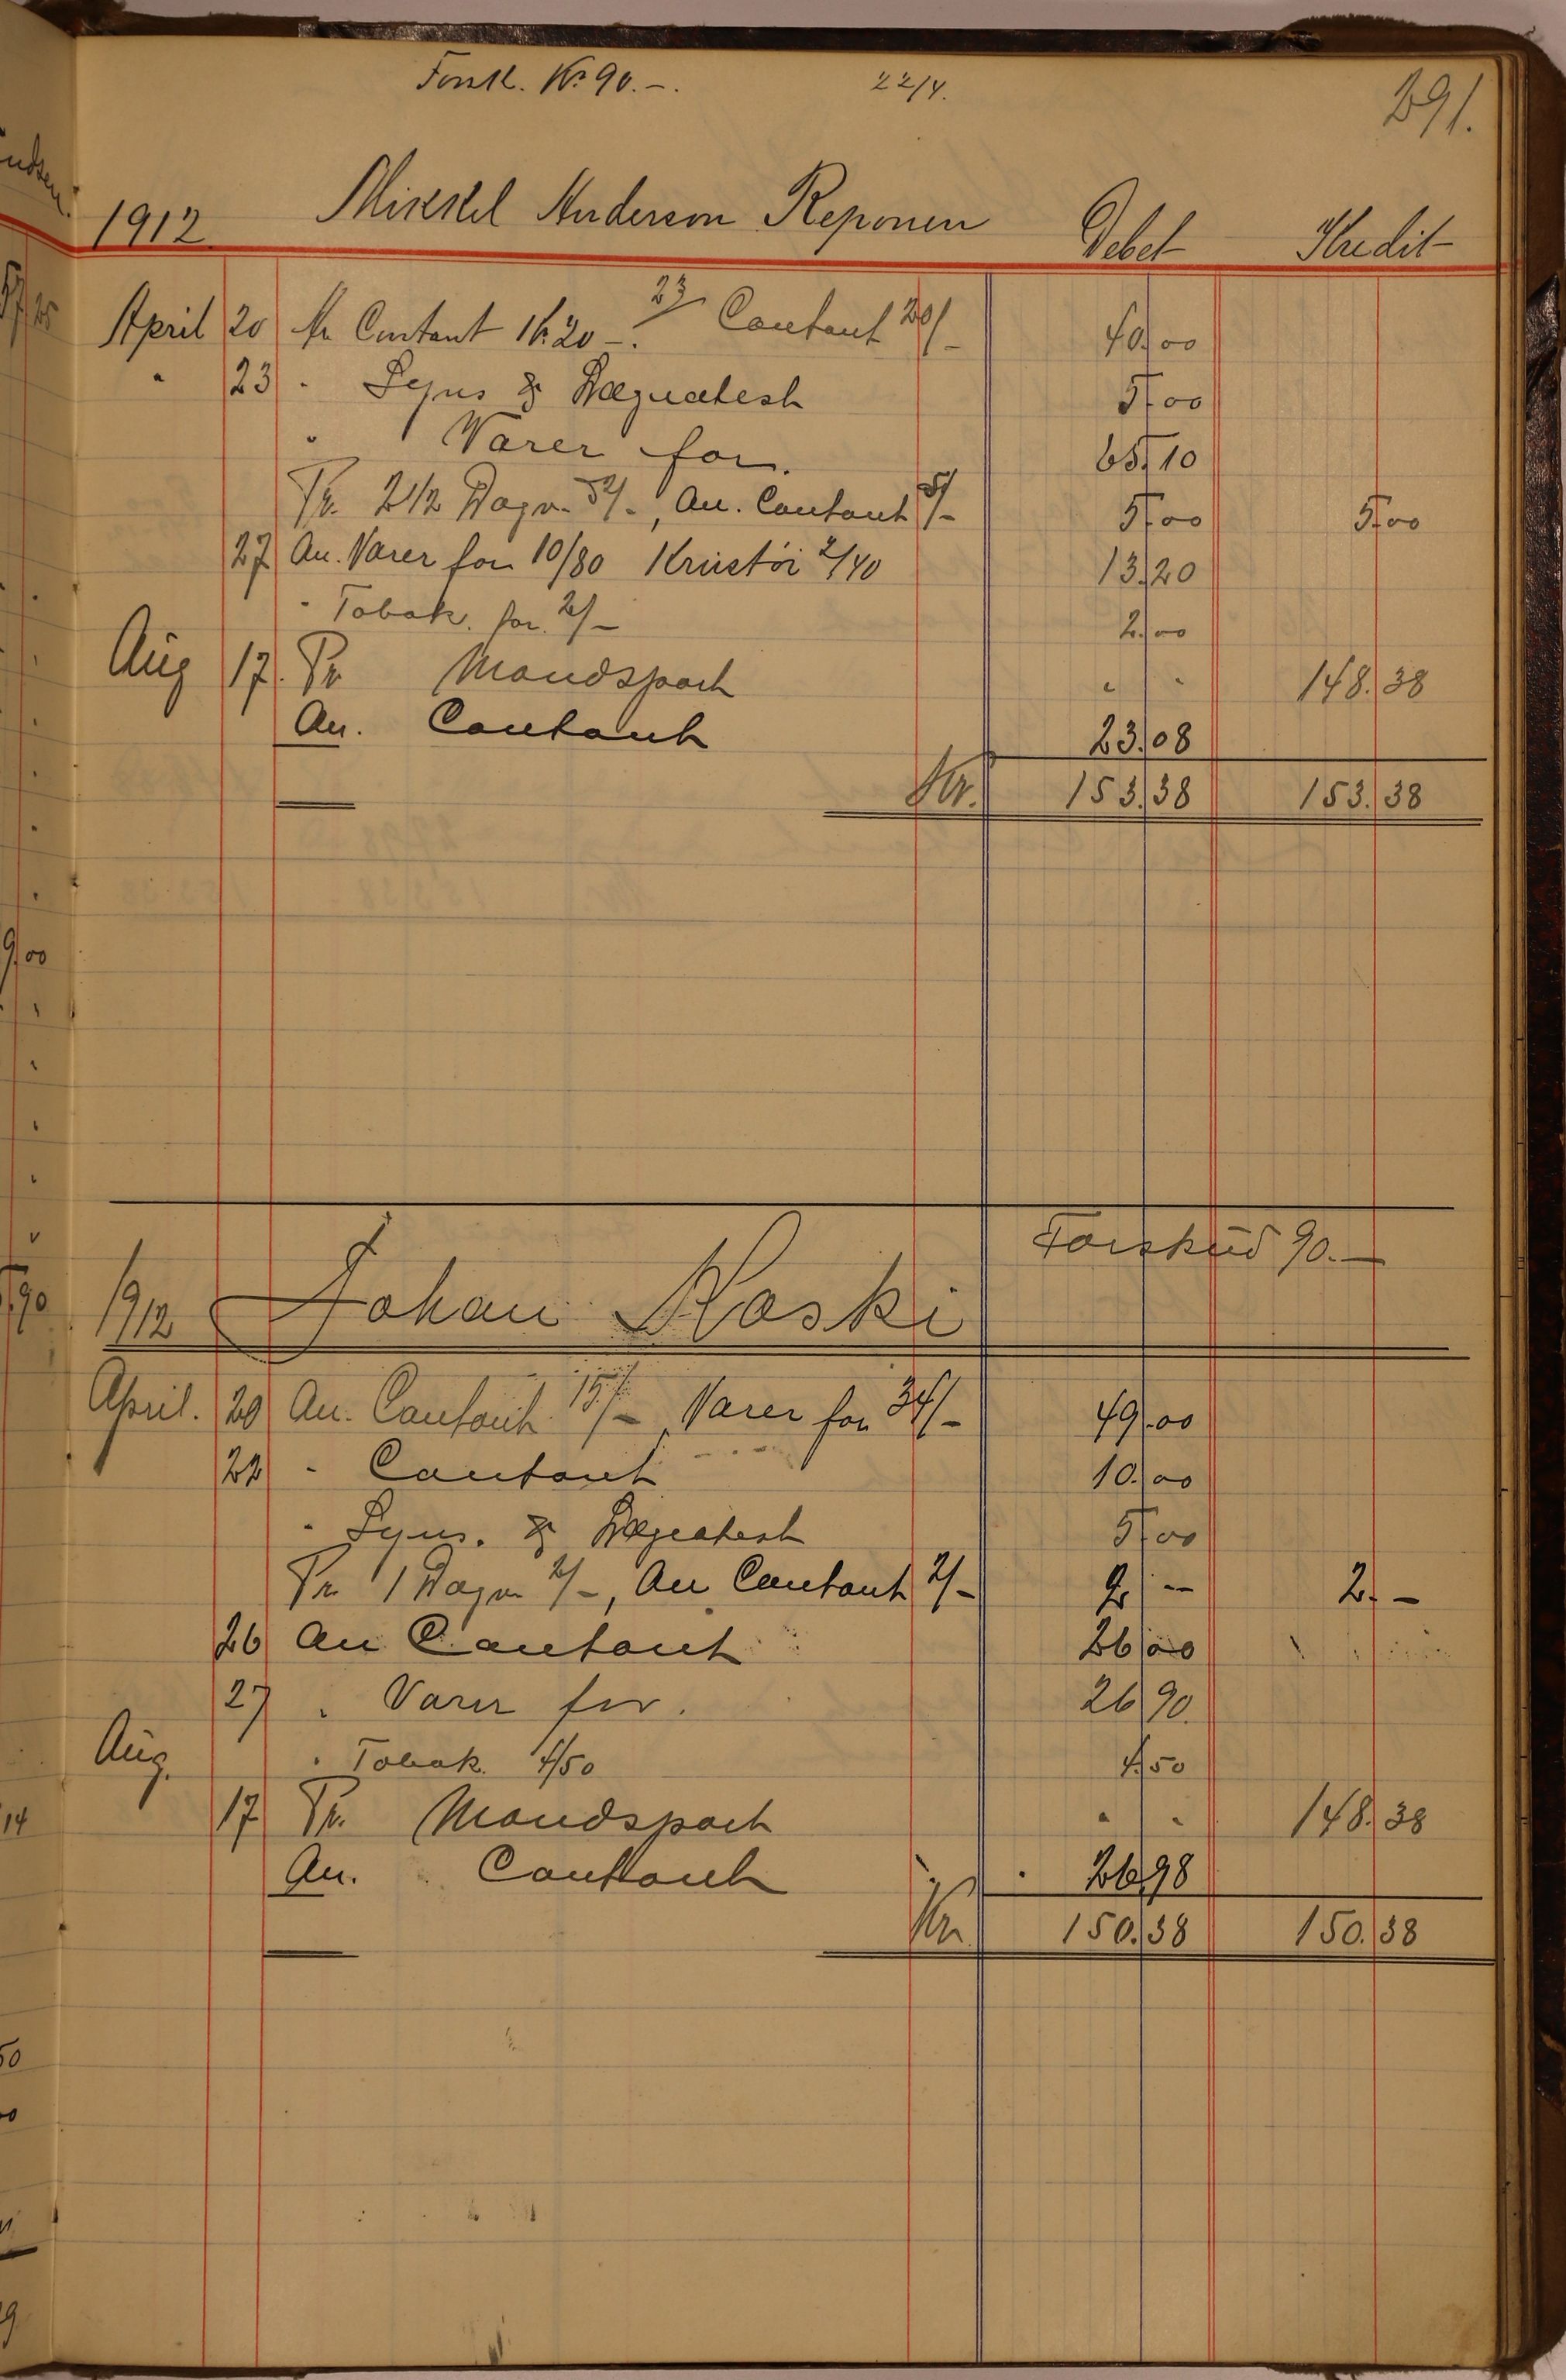 Forsk. Kr 90.-. 22/4. 291.
1912. Mikkel Anderson Reponen Debet Kredit
April 20 An Contant Kr 20 -. 23/ Contant 20/- 40.00
" 23 " Lyns & Lægeatesh 5.00
" Varer for. 65.10
Pr. 2 1/2 Dagv. 5/-, An. Contant 5/- 5.00 5.00
27 An. Varer for 10/80 Krustöi 2/40 13.20
" Tobak. for. 2/- 2.00
Aug 17. Pr Maudspart " " 148.38
An. Contant 23.08
Kr. 153.38 153.38
Forskud 90.-
1912 Johan Koski
April. 20 An. Contant 15/-, Varer for 34/- 49.00
22 " Contant 10.00
" Lyns. & Lægeatesh 5.00
Pr 1 Dagv. 2/-, An Contant 2/- 2 -- 2.-
26 An Contant 26.00
27 " Varer for. 26 90.
Aug. " Tobak. 4/50 4.50
17 Pr. Maudspart " " 148.38
An. Contant 26.98
Kr 150.38 150.38